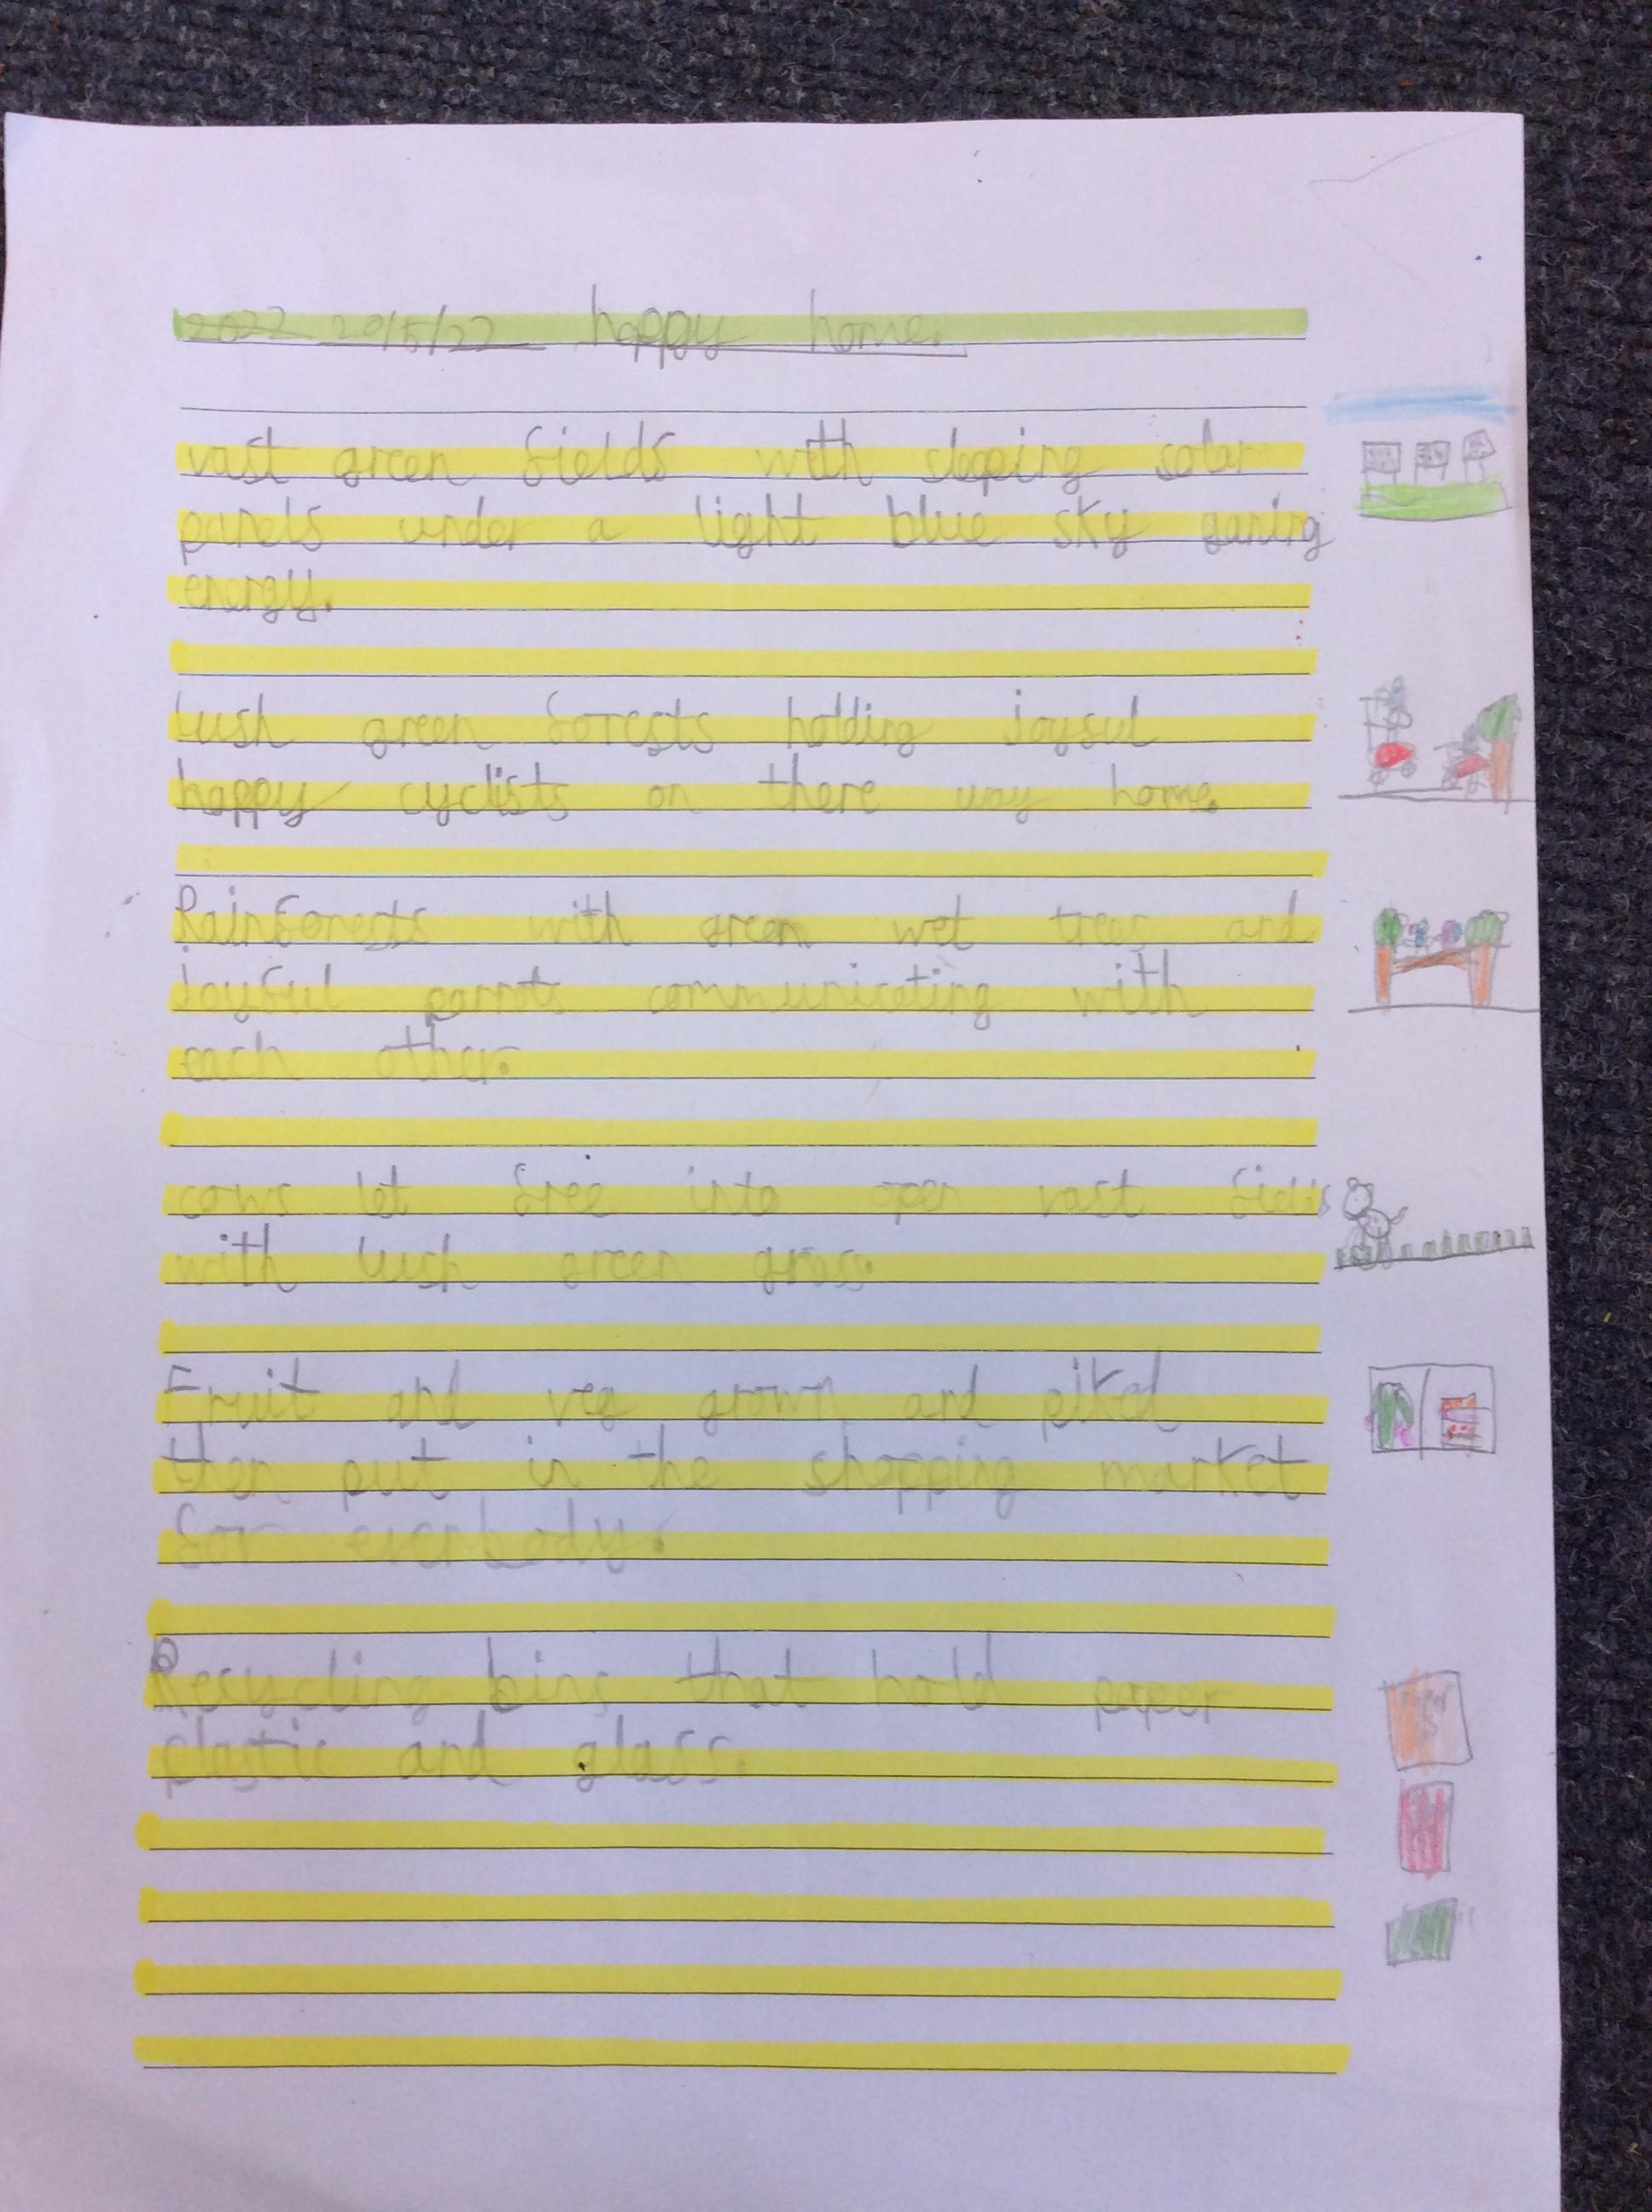 2022 20/5/22 happy home.
vast green fields with sloping solar
panels under a light blue sky ganing
energy.
lush green forests holding joyful
happy cyclists on there way home.
Rainforests with green wet trees and
joyful parrots communicating with
each other.
cows let free into open vast fields
with lush green grass.
Fruit and veg grown and piked
then put in the shopping market
for everbody.
Recycling bins that hold paper
plastic and glass.